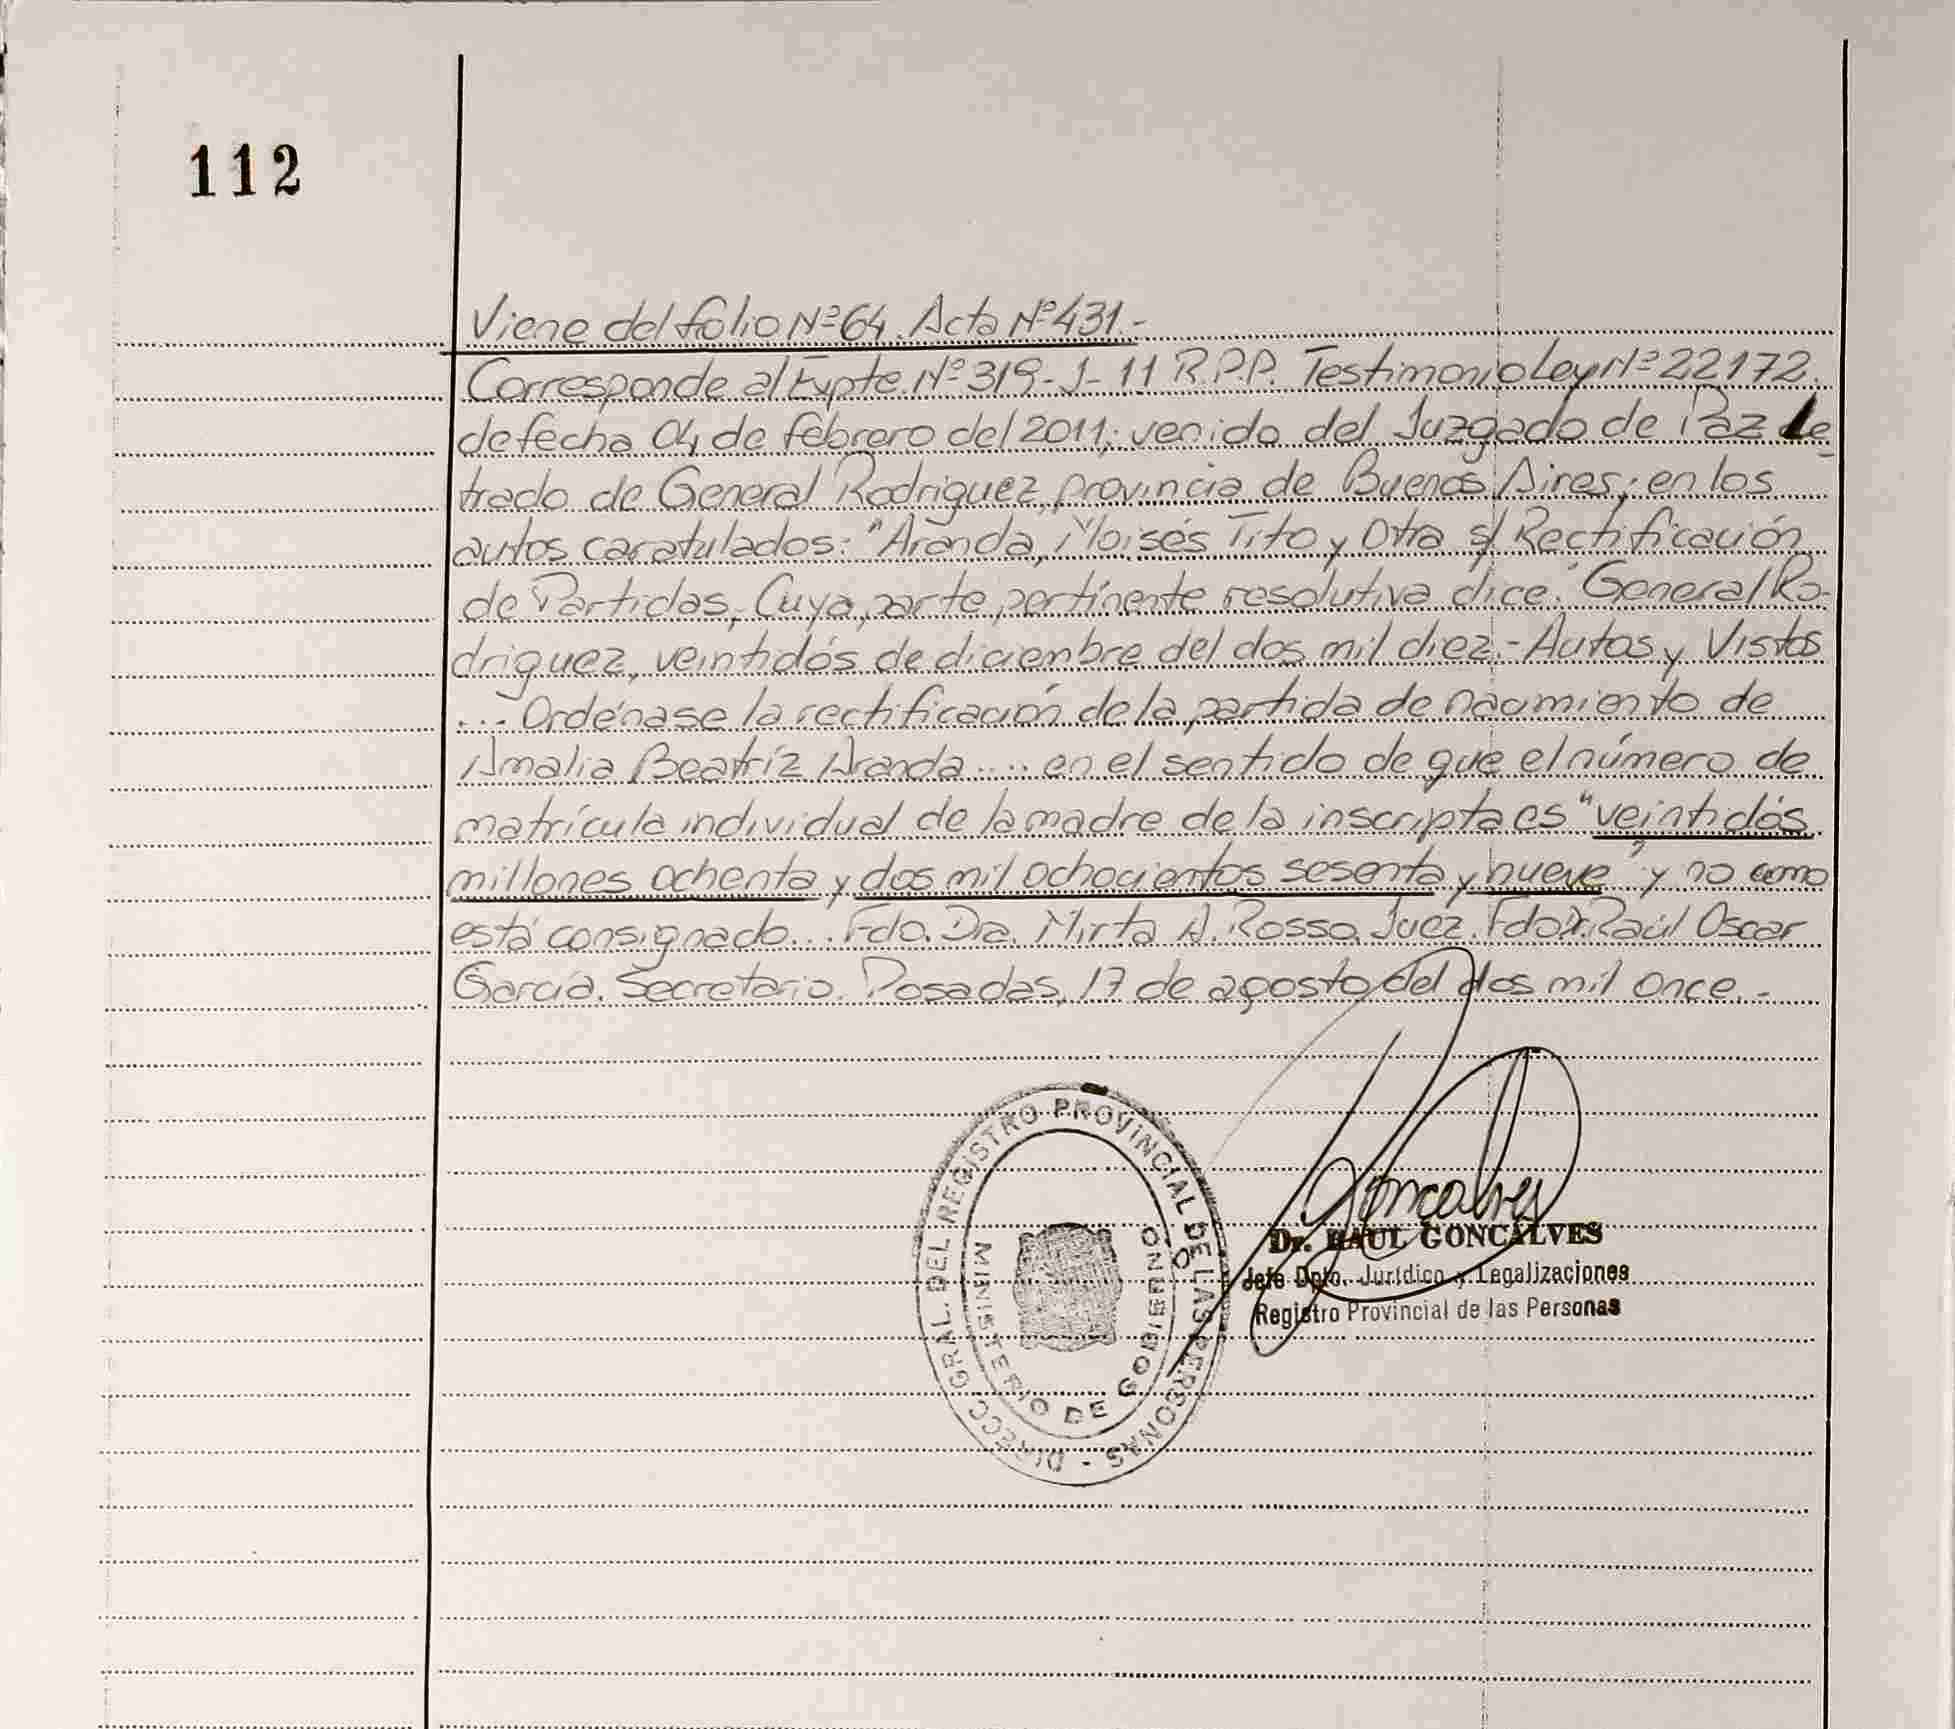 112
Viene del folio Nº 64. Acta Nº 431.-
Corresponde al Expte. Nº 319-J-11 R.P.P. Testimonio Ley Nº 22172.
de fecha 04 de febrero del 2011; venido del Juzgado de Paz Le-
trado de General Rodriguez, provincia de Buenos Aires; en los
autos caratulados: "Aranda, Moisés Tito y Otra s/ Rectificación
de Partidas, Cuya parte pertinente resolutiva dice: "General Ro-
driguez, veintidós de diciembre del dos mil diez.- Autos y Vistos
... Ordénase la rectificación de la partida de nacimiento de
Amalia Beatríz Aranda .... en el sentido de que el número de
matrícula individual de la madre de la inscripta es "veintidós
millones ochenta y dos mil ochocientos sesenta y nueve" y no como
está consignado... Fdo. Dra. Mirta A. Rosso. Juez. Fdo Dr. Raúl Oscar
García. Secretario. Posadas, 17 de agosto del dos mil once.-
DIRECC. GRAL. DEL REGISTRO PROVINCIAL DE LAS PERSONAS -
MINISTERIO DE GOBIERNO
Goncalves
Dr. RAUL GONCALVES
Jefe Dpto. Jurídico y Legalizaciones
Registro Provincial de las Personas